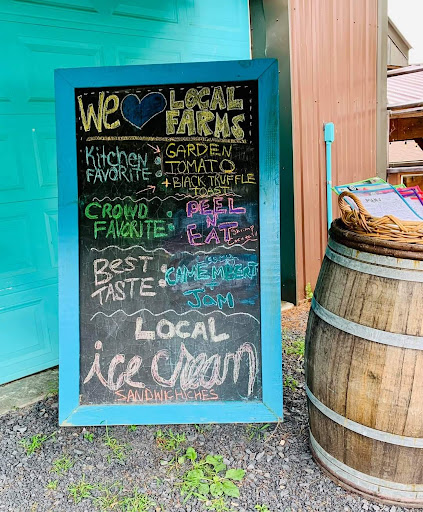 We ♥ LOCAL
FARMS
Kitchen FAVORITE: → GARDEN
TOMATO
→ + BLACK TRUFFLE
TOAST
CROWD FAVORITE: PEEL
N
EAT
BEST TASTE: CAMEMBERT
+
JAM
LOCAL
ice cream
SANDWICHES